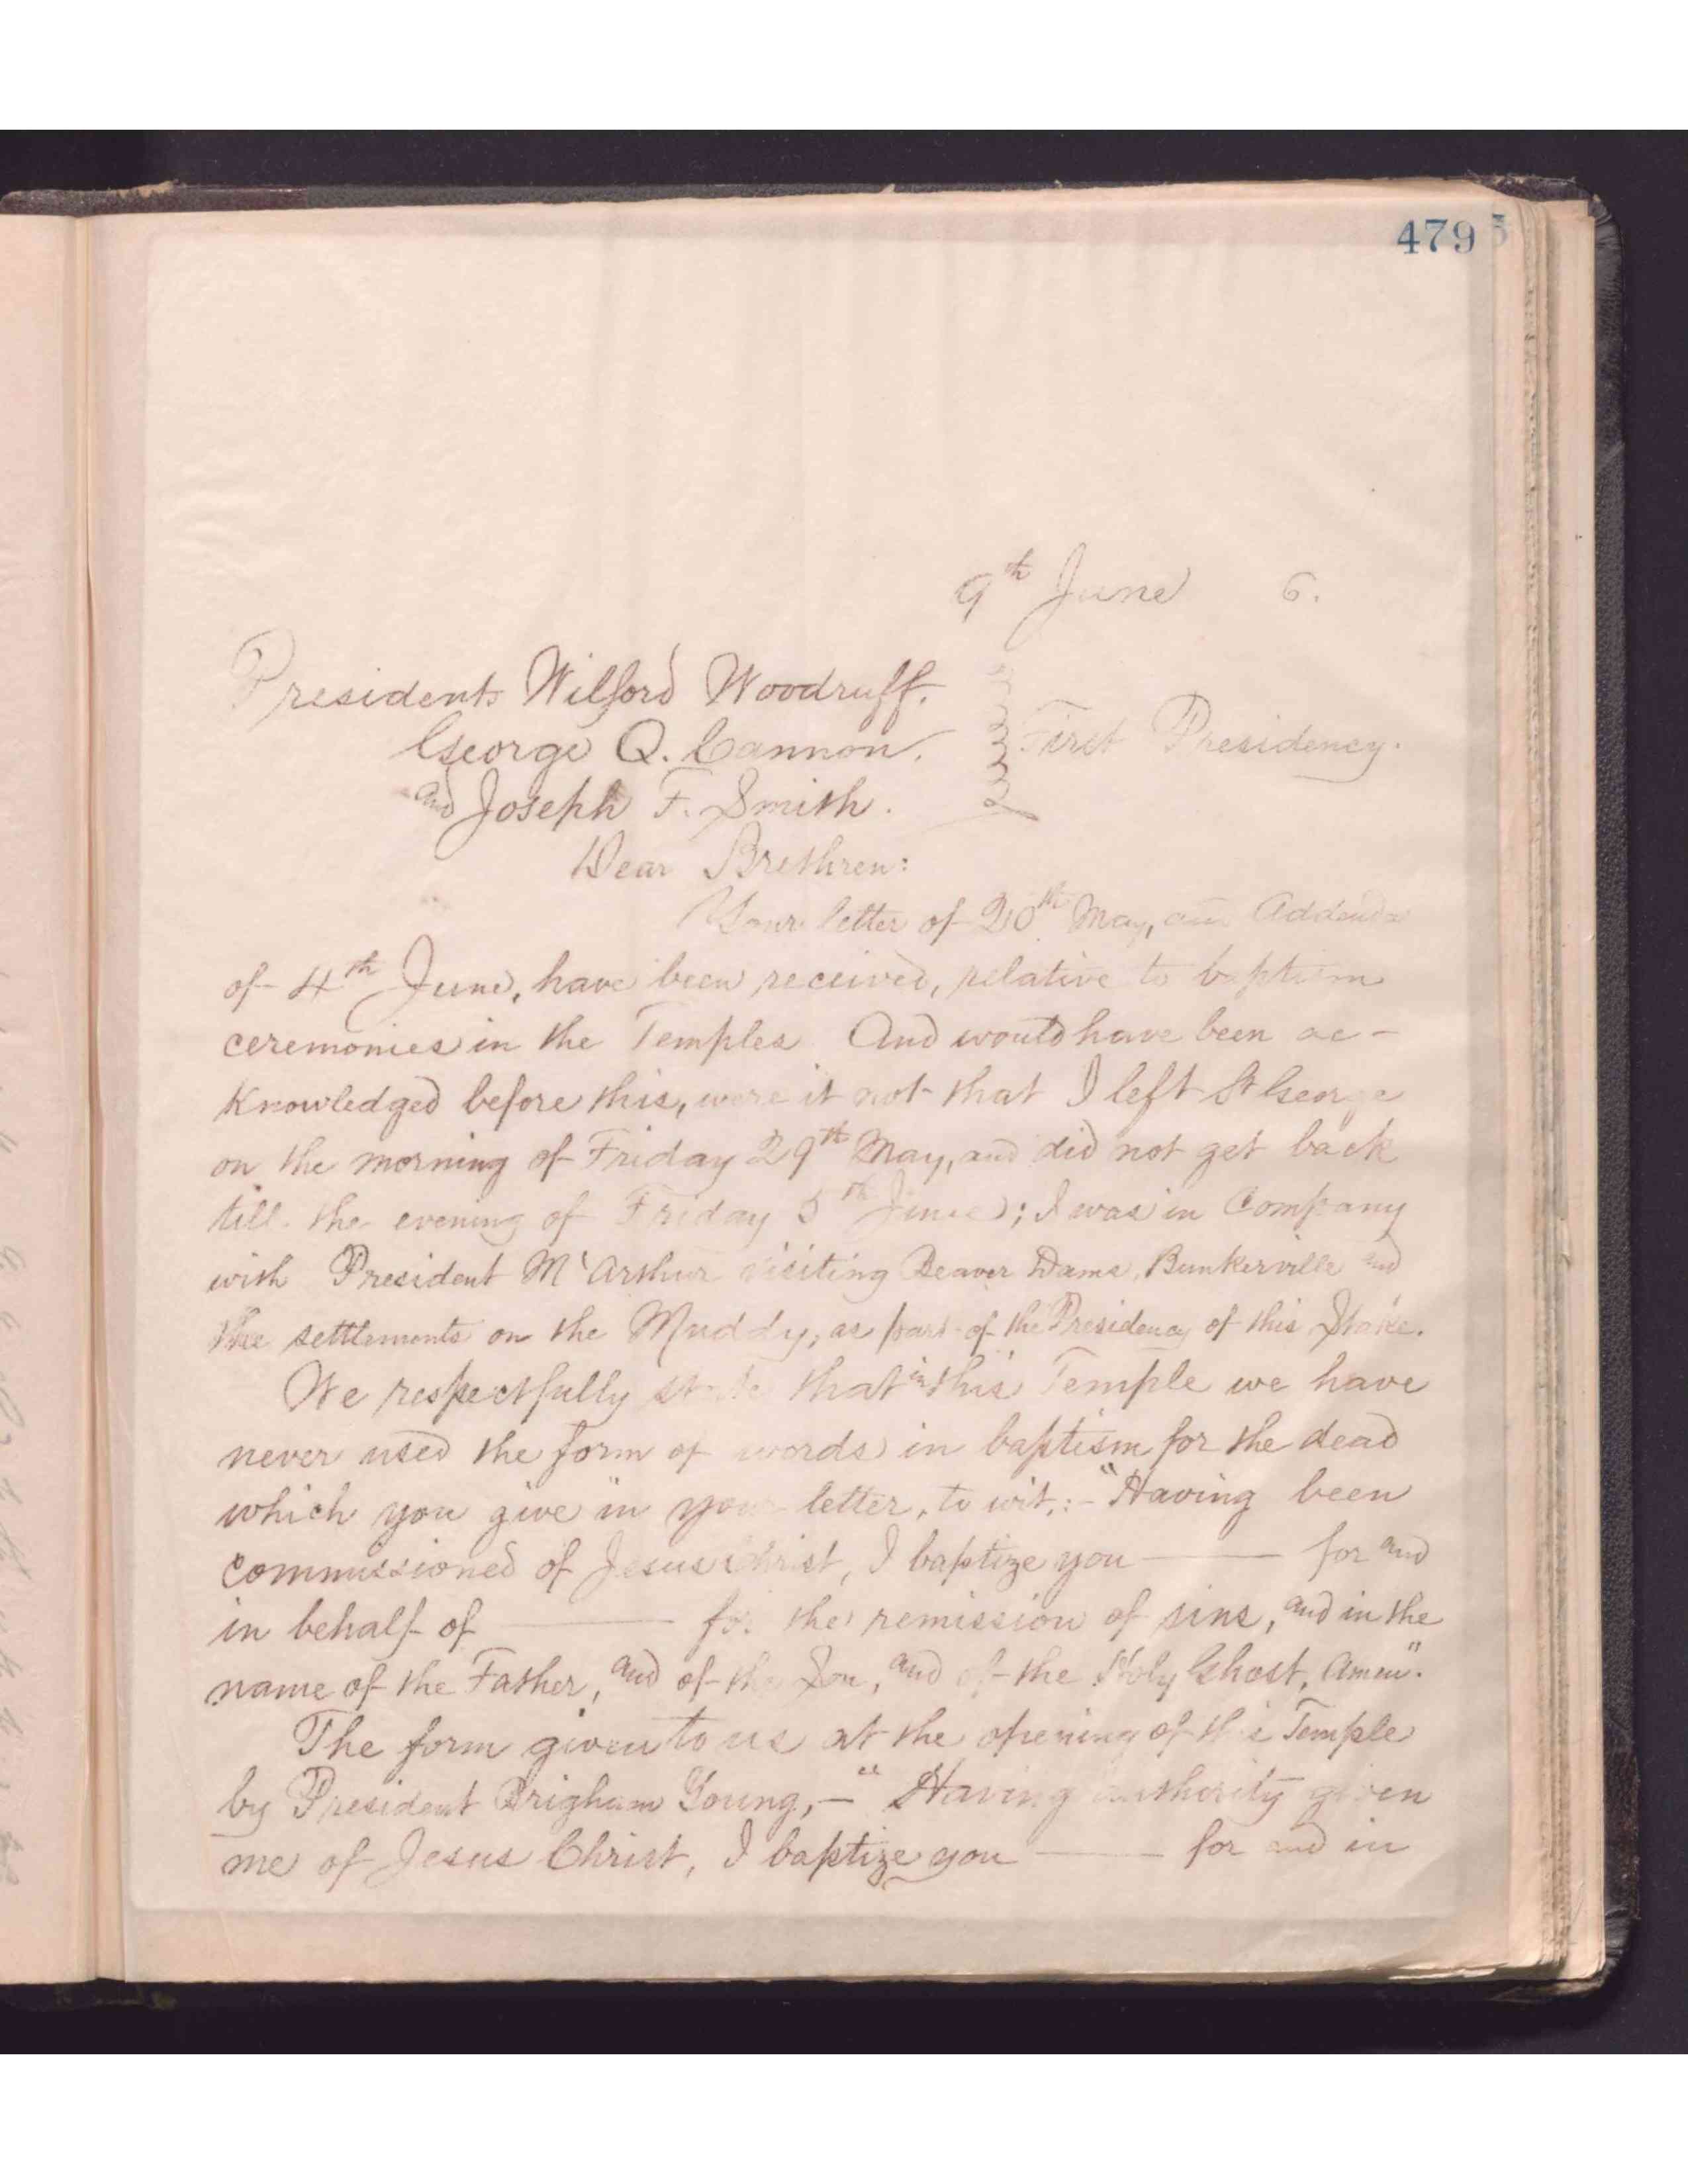 479
9th June 6.
Presidents Wilford Woodruff.
George Q. Cannon.
First Presidency.
and Joseph F. Smith.
Dear Brethren:
Your letter of 20th May, and Addenda
of 4th June, have been received, relative to baptism
ceremonies in the Temples And would have been ac-
knowledged before this, were it not that I left St George
on the morning of Friday 29th May, and did not get back
till the evening of Friday 5th June; I was in Company
with President McArthur visiting Beaver Dams, Bunkerville and
the settlements on the Muddy, as part of the Presidency of this Stake.
We respectfully state that in this Temple we have
never used the form of words in baptism for the dead
which you give in your letter, to wit,:- "Having been
commissioned of Jesus Christ, I baptize you ——— for and
in behalf of ——— for the remission of sins, and in the
name of the Father, and of the Son, and of the Holy Ghost, Amen".
The form given to us at the opening of this Temple
by President Brigham Young,— "Having authority given
me of Jesus Christ, I baptize you ——— for and in